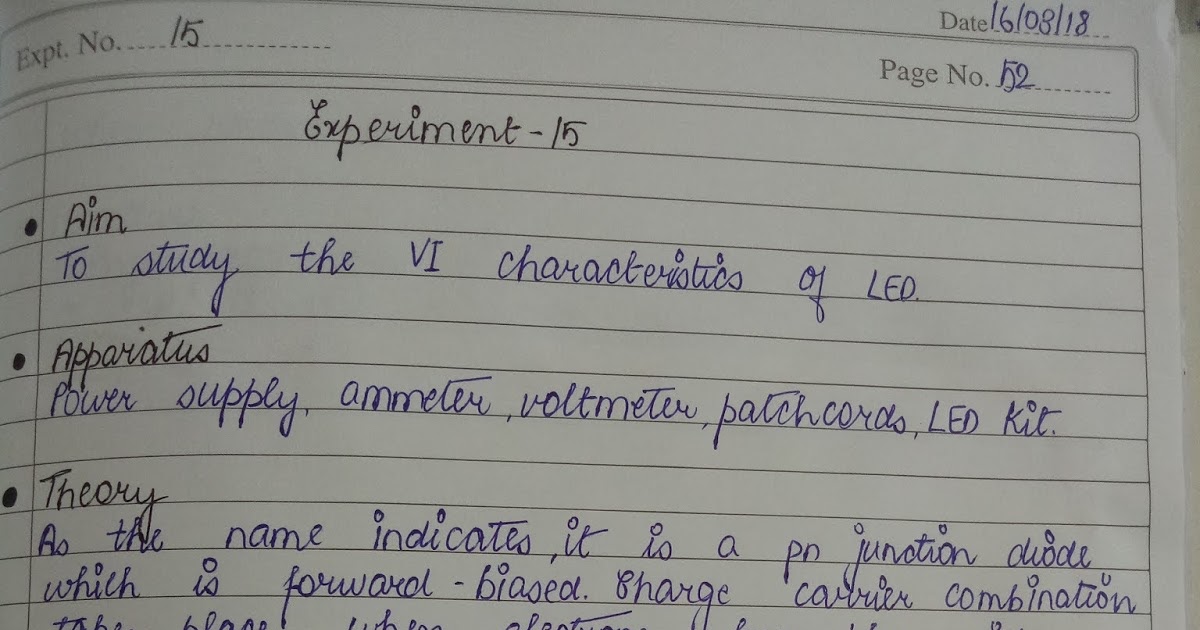 Expt. No. 15
Date 16/03/18
Page No. 52
Experiment - 15
• Aim
To study the VI characteristics of LED.
• Apparatus
Power supply, ammeter, voltmeter, patchcords, LED Kit.
• Theory
As the name indicates, it is a pn junction diode
which is forward - biased. Charge carrier combination